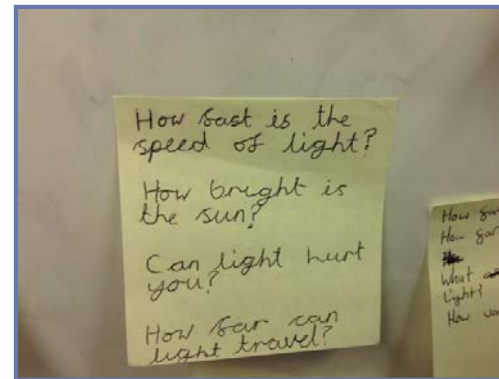 How fast is the
speed of light?
How bright is
the sun?
Can light hurt
you?
How far can
light travel?
How far
How far
What
light?
How